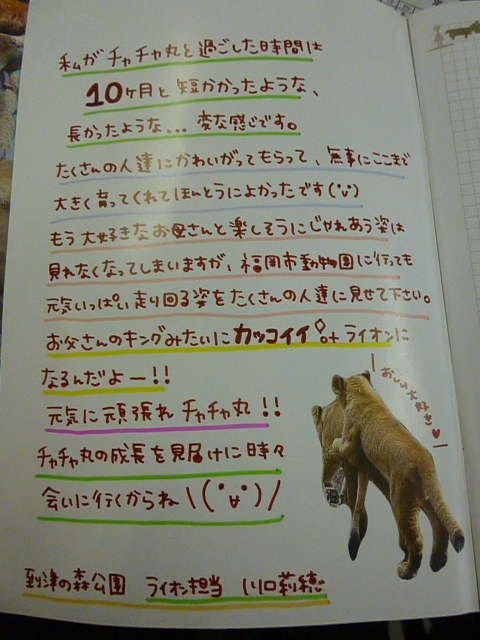 私がチャチャ丸と過ごした時間は
10ヶ月と短かかったような、
長かったような... 変な感じです。
たくさんの人達にかわいがってもらって、無事にここまで
大きく育ってくれてほんとうによかったです(¨)
もう大好きなお母さんと楽しそうにじゃれあう姿は
見れなくなってしまいますが、福岡市動物園に行っても
元気いっぱい走り回る姿をたくさんの人達に見せて下さい。
お父さんのキングみたいにカッコイイ ライオンに
なるんだよー!!
元気に頑張れ チャチャ丸 !!
チャチャ丸の成長を見届けに時々
会いに行くからね \(¨)/
大好き♥
到津の森公園 ライオン担当 川口莉穂